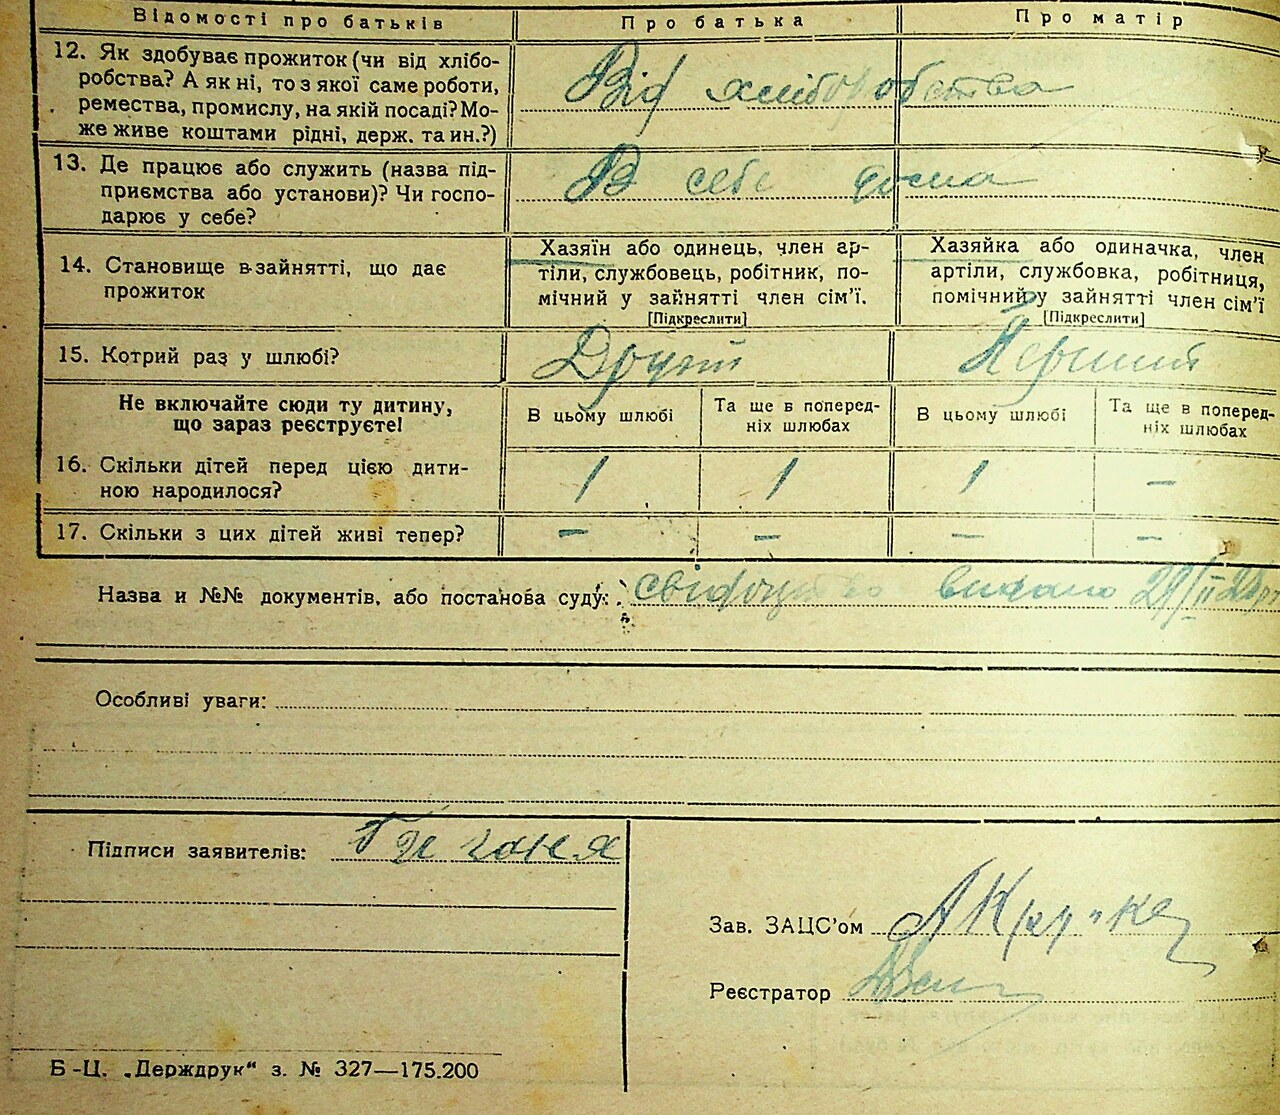 Відомості про батьків Про батька Про матір
12. Як здобуває прожиток (чи від хлібо-
робства? А як ні, то з якої саме роботи,
ремества, промислу, на якій посаді? Мо-
же живе коштами рідні, держ. та ин.?)
Від хліборобства
13. Де працює або служить (назва під-
приємства або установи)? Чи госпо-
дарює у себе?
В себе дома
14. Становище в зайнятті, що дає
прожиток
Хазяїн або одинець, член ар-
тіли, службовець, робітник, по-
мічний у зайнятті член сім'ї.
[Підкреслити]
Хазяйка або одиначка, член
артіли, службовка, робітниця,
помічний у зайнятті член сім'ї
[Підкреслити]
15. Котрий раз у шлюбі? Другий Перший
Не включайте сюди ту дитину,
що зараз реєструєте!
В цьому шлюбі
Та ще в поперед-
ніх шлюбах
В цьому шлюбі
Та ще в поперед-
ніх шлюбах
16. Скільки дітей перед цією дити-
ною народилося?
1 1 1 —
17. Скільки з цих дітей живі тепер? — — — —
Назва и №№ документів, або постанова суду: свідоцтво видано 29/II
Особливі уваги:
Підписи заявителів:
Зав. ЗАЦС'ом
Реєстратор
Б-Ц. „Держдрук" з. № 327—175.200